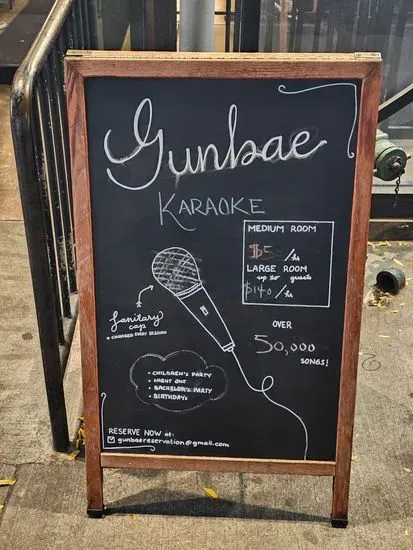 Gunbae
KARAOKE
MEDIUM ROOM
$50/hr
LARGE ROOM
up to guests
$140/hr
Sanitary
cap
CHANGED EVERY SESSION
OVER
50,000
SONGS!
• CHILDREN'S PARTY
• NIGHT OUT
• BACHELOR'S PARTY
• BIRTHDAYS
RESERVE NOW at:
gunbaereservation@gmail.com